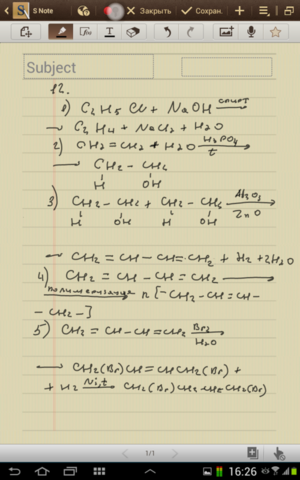 S Note
Закрыть
Сохран.
Subject
12.
1) C2H5Cl + NaOH спирт
→ C2H4 + NaCl2 + H2O
2) CH2=CH2 + H2O H3PO4
t
→ CH2 – CH2
H OH
3) CH2–CH2 + CH2–CH2 Al2O3
H OH H OH ZnO
→ CH2 = CH – CH = CH2 + H2 + 2H2O
4) CH2 = CH – CH = CH2 →
полимеризация n[–CH2–CH=CH–
–CH2–]
5) CH2 = CH–CH=CH2 Br2
H2O
→ CH2(Br)CH=CHCH2(Br) +
+ H2 Ni,t CH2(Br)CH2CH2CH2(Br)
1/1
16:26